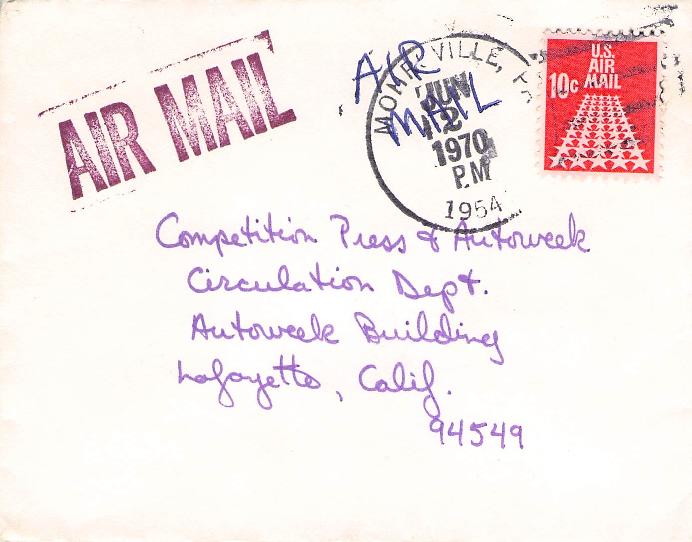 AIR MAIL
AIR
MAIL
MORRISVILLE, PA
JUN
2
1970
PM
1954
U.S.
AIR
10c MAIL
Competition Press & Autoweek
Circulation Dept.
Autoweek Building
Lafayette, Calif.
94549